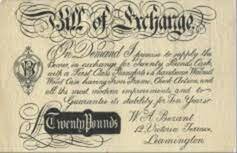 Bill of Exchange.
On Demand I promise to supply the
Bearer, in exchange for Twenty Pounds Cash
with a First Class Pianoforte in handsome Walnut
Wood Case having Iron Frame, Check Action, and
all the most modern improvements and to
Guarantee its stability for Ten Years.
W. A.
Twenty Pounds
12, Victoria Terrace,
Leamington